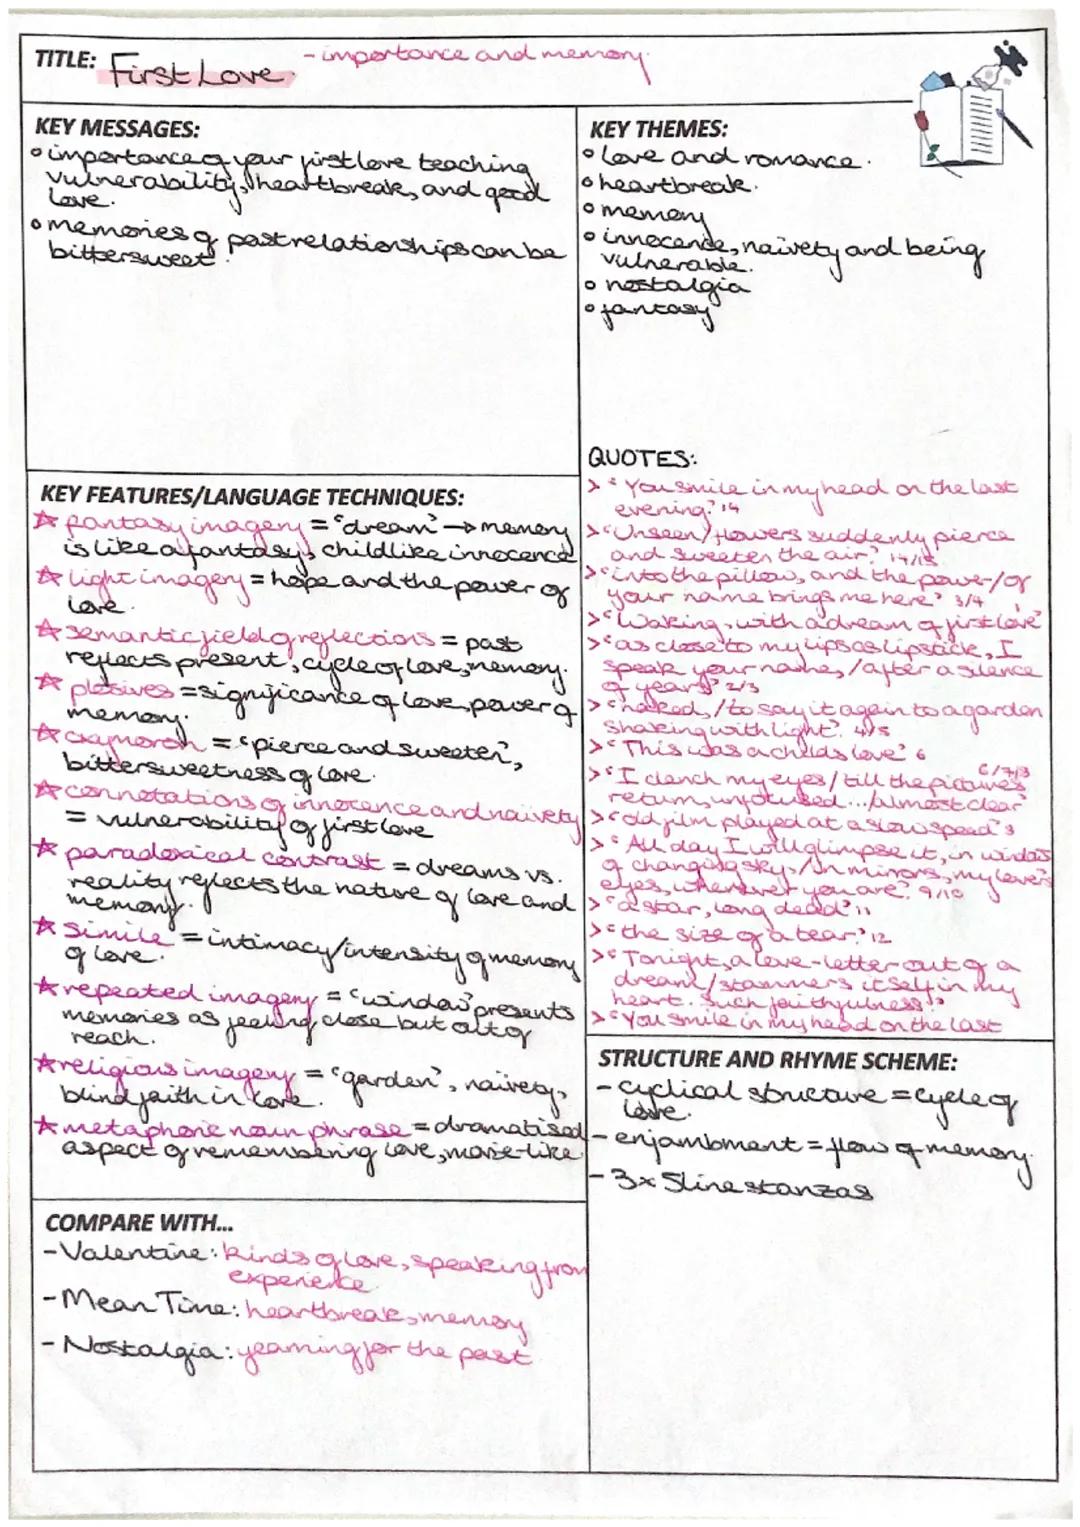 TITLE: First Love - importance and memory.
KEY MESSAGES:
importance of your first love teaching
vulnerability, heartbreak, and good
love.
memories of past relationships can be
bittersweet.
KEY THEMES:
love and romance.
heartbreak.
memory
innocence, naivety and being
vulnerable.
nostalgia
fantasy
KEY FEATURES/LANGUAGE TECHNIQUES:
☆ fantasy imagery = 'dream' → memory
is like a fantasy, childlike innocence
☆ light imagery = hope and the power of
love.
☆ semantic field of reflections = past
reflects present, cycle of love, memory.
☆ plosives = significance of love, power of
memory.
☆ oxymoron = 'pierce and sweeten',
bittersweetness of love.
☆ connotations of innocence and naivety
= vulnerability of first love
☆ paradoxical contrast = dreams vs.
reality reflects the nature of love and
memory.
☆ simile = intimacy/intensity of memory
of love.
☆ repeated imagery = 'window' presents
memories as feeling close but out of
reach.
☆ religious imagery = 'garden', naivety,
blind faith in love.
☆ metaphoric noun phrase = dramatised
aspect of remembering love, movie-like
QUOTES:
> 'You smile in my head on the last
evening.' 14
> 'Unseen/flowers suddenly pierce
and sweeten the air.' 14/15
> 'into the pillow, and the power/of
your name brings me here' 3/4
> 'Waking, with a dream of first love' 1
> 'as close to my lips as lipstick, I
speak your name, /after a silence
of years' 2/3
> 'naked, /to say it again to a garden
shaking with light'. 4/5
> 'This was a childs love' 6
> 'I clench my eyes/till the pictures 6/7/8
return, unfocused.../almost clear'
> 'old film played at a slow speed' 8
> 'All day I will glimpse it, in windows
of changing sky,/in mirrors, my lover's
eyes, wherever you are.' 9/10
> 'a star, long dead' 11
> 'the size of a tear.' 12
> 'Tonight, a love-letter out of a
dream/stammers itself in my
heart. Such faithfulness.'
> 'You smile in my head on the last
STRUCTURE AND RHYME SCHEME:
- cyclical structure = cycle of
love.
- enjambment = flow of memory.
- 3x 5line stanzas
COMPARE WITH...
- Valentine: kinds of love, speaking from
experience
- Mean Time: heartbreak, memory
- Nostalgia: yearning for the past